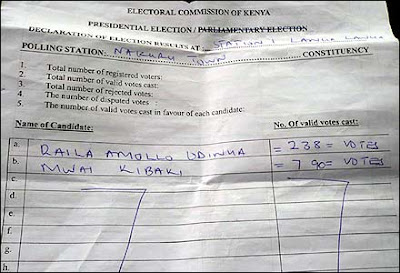 ELECTORAL COMMISSION OF KENYA
PRESIDENTIAL ELECTION / PARLIAMENTARY ELECTION
DECLARATION OF ELECTION RESULTS AT STATION 1 LANGA LANGA
POLLING STATION: NAKURU TOWN CONSTITUENCY
1. Total number of registered voters:
2. Total number of valid votes cast:
3. Total number of rejected votes:
4. The number of disputed votes :
5. The number of valid votes cast in favour of each candidate:
Name of Candidate: No. Of valid votes cast:
a. RAILA AMOLLO ODINGA = 238 = VOTES
b. MWAI KIBAKI = 790 = VOTES
c.
d.
e.
f.
g.
h.